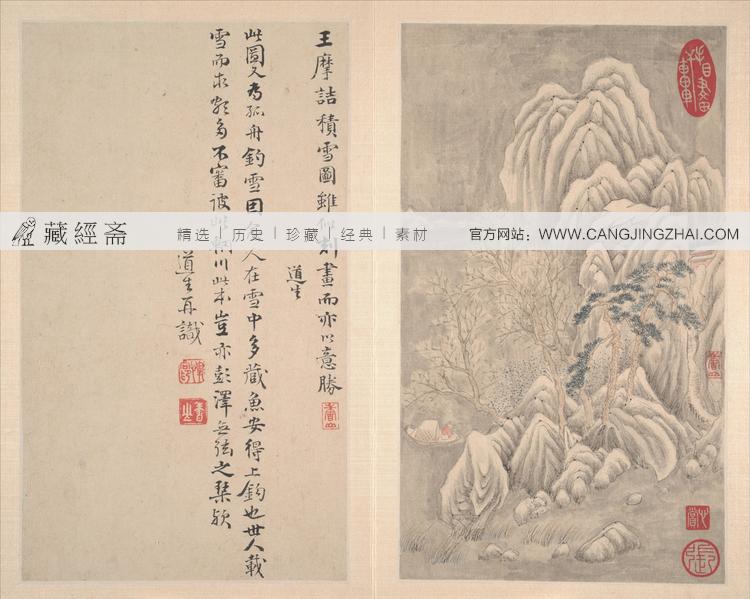 王摩詰積雪圖雖 刻畫而亦以意勝
道生
此圖又為孤舟釣雪因 人在雪中多藏魚安得上釣也世人載
雪而求 多不審 輞川此本豈亦彭澤無絃之琴
道生再識
藏經斋
精选 | 历史 | 珍藏 | 经典 | 素材
官方网站：WWW.CANGJINGZHAI.COM